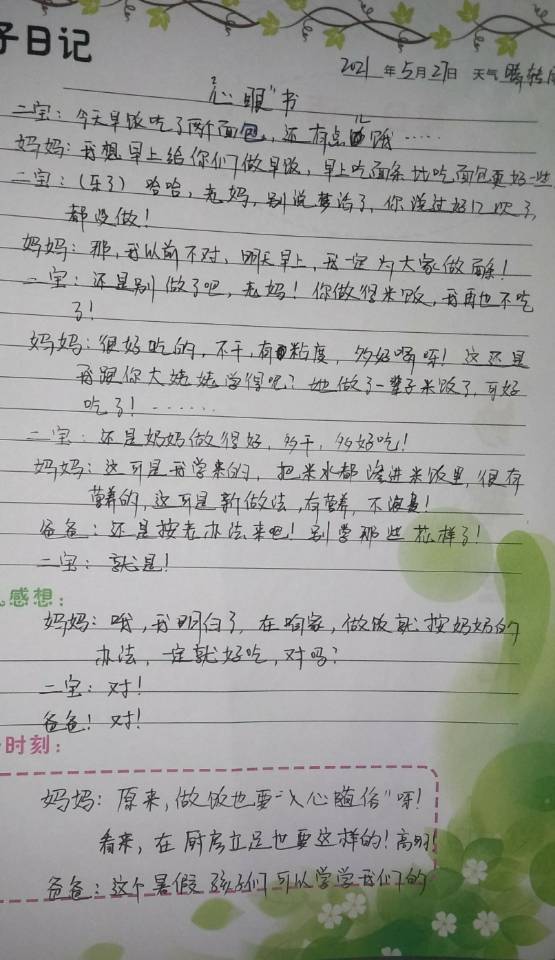 子日记
2021年5月27日 天气 晴转
"心眼"书
二宝：今天早饭吃了两个面包，还有点儿饿……
妈妈：我想早上给你们做早饭，早上吃面条比吃面包更好一些
二宝：(乐了) 哈哈，老妈，别说梦话了，你说过好几次了，
都没做！
妈妈：那，我以前不对，明天早上，我一定为大家做面条！
二宝：还是别做了吧，老妈！你做得米饭，我再也不吃
了！
妈妈：很好吃的，不干，有粘度，多好啊呀！这还是
我跟你大姥姥学得呢？她做了一辈子米饭了，可好
吃了！……
二宝：还是奶奶做得好，多干，多好吃！
妈妈：这可是我学来的，把米水都渗进米饭里，很有
营养的，这可是新做法，有营养，不浪费！
爸爸：还是按老办法来吧！别学那些花样了！
二宝：就是！
感想：
妈妈：哦，我明白了，在咱家，做饭就按奶奶的
办法，一定就好吃，对吗？
二宝：对！
爸爸！对！
时刻：
妈妈：原来，做饭也要"入心随俗"呀！
看来，在厨房立足也要这样的！高明！
爸爸：这个暑假孩子们可以学学我们的